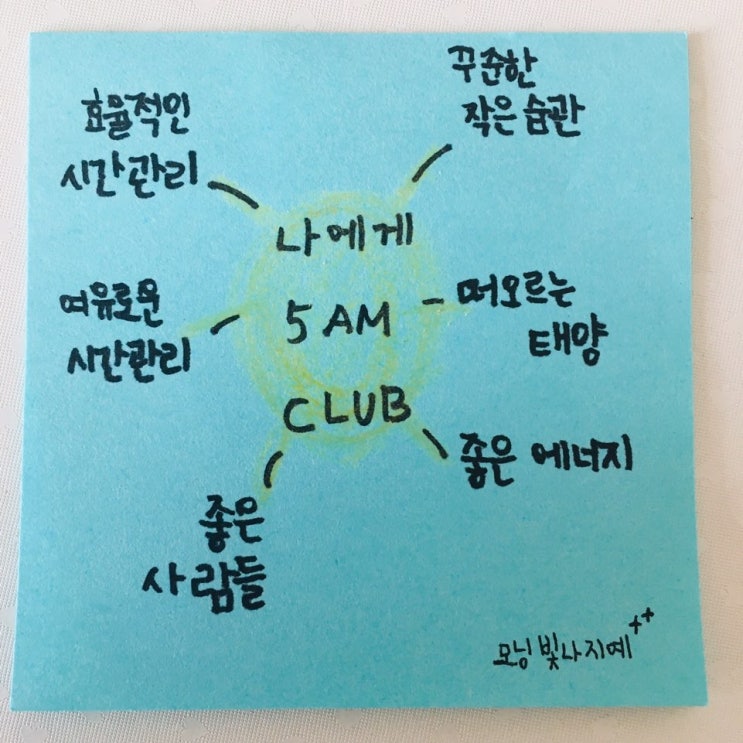 나에게
5 AM
CLUB
효율적인
시간관리
꾸준한
작은 습관
여유로운
시간관리
떠오르는
태양
좋은 에너지
좋은
사람들
모닝빛나지예++